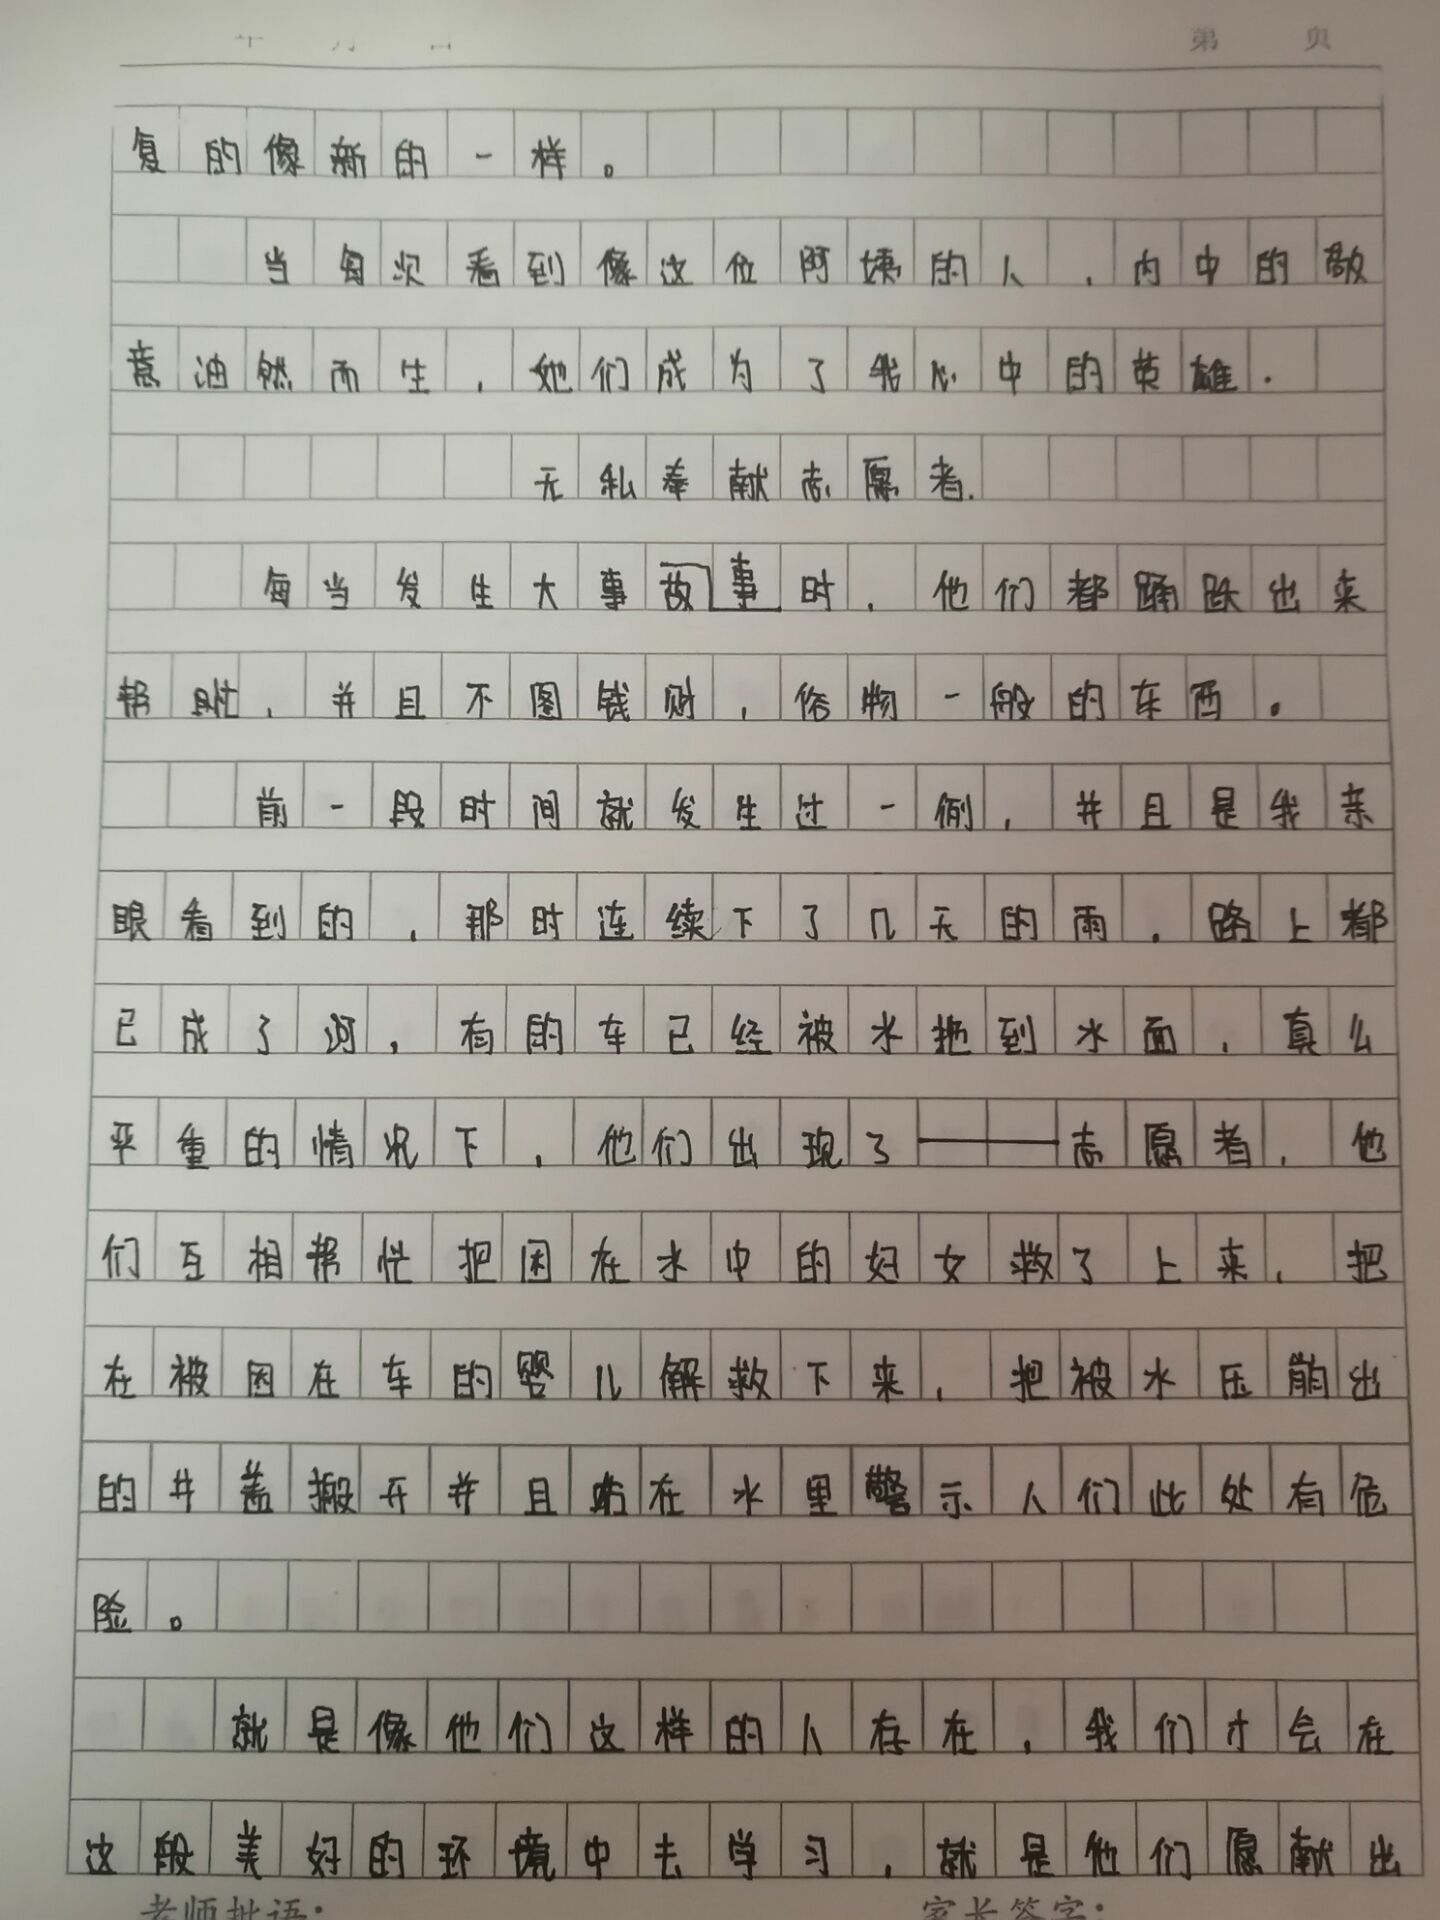 年 月 日 第 页
复的像新的一样。
当每次看到像这位阿姨的人，内中的敬
意油然而生，她们成为了我心中的英雄.
无私奉献志愿者.
每当发生大事故事时，他们都踊跃出来
帮忙，并且不图钱财，俗物一般的东西。
前一段时间就发生过一例，并且是我亲
眼看到的，那时连续下了几天的雨，路上都
已成了河，有的车已经被水抱到水面，真么
严重的情况下，他们出现了——志愿者，他
们互相帮忙把困在水中的妇女救了上来，把
在被困在车的婴儿解救下来，把被水压崩出
的井盖搬开并且站在水里警示人们此处有危
险。
就是像他们这样的人存在，我们才会在
这般美好的环境中去学习，就是他们愿献出
老师批语： 家长签字：